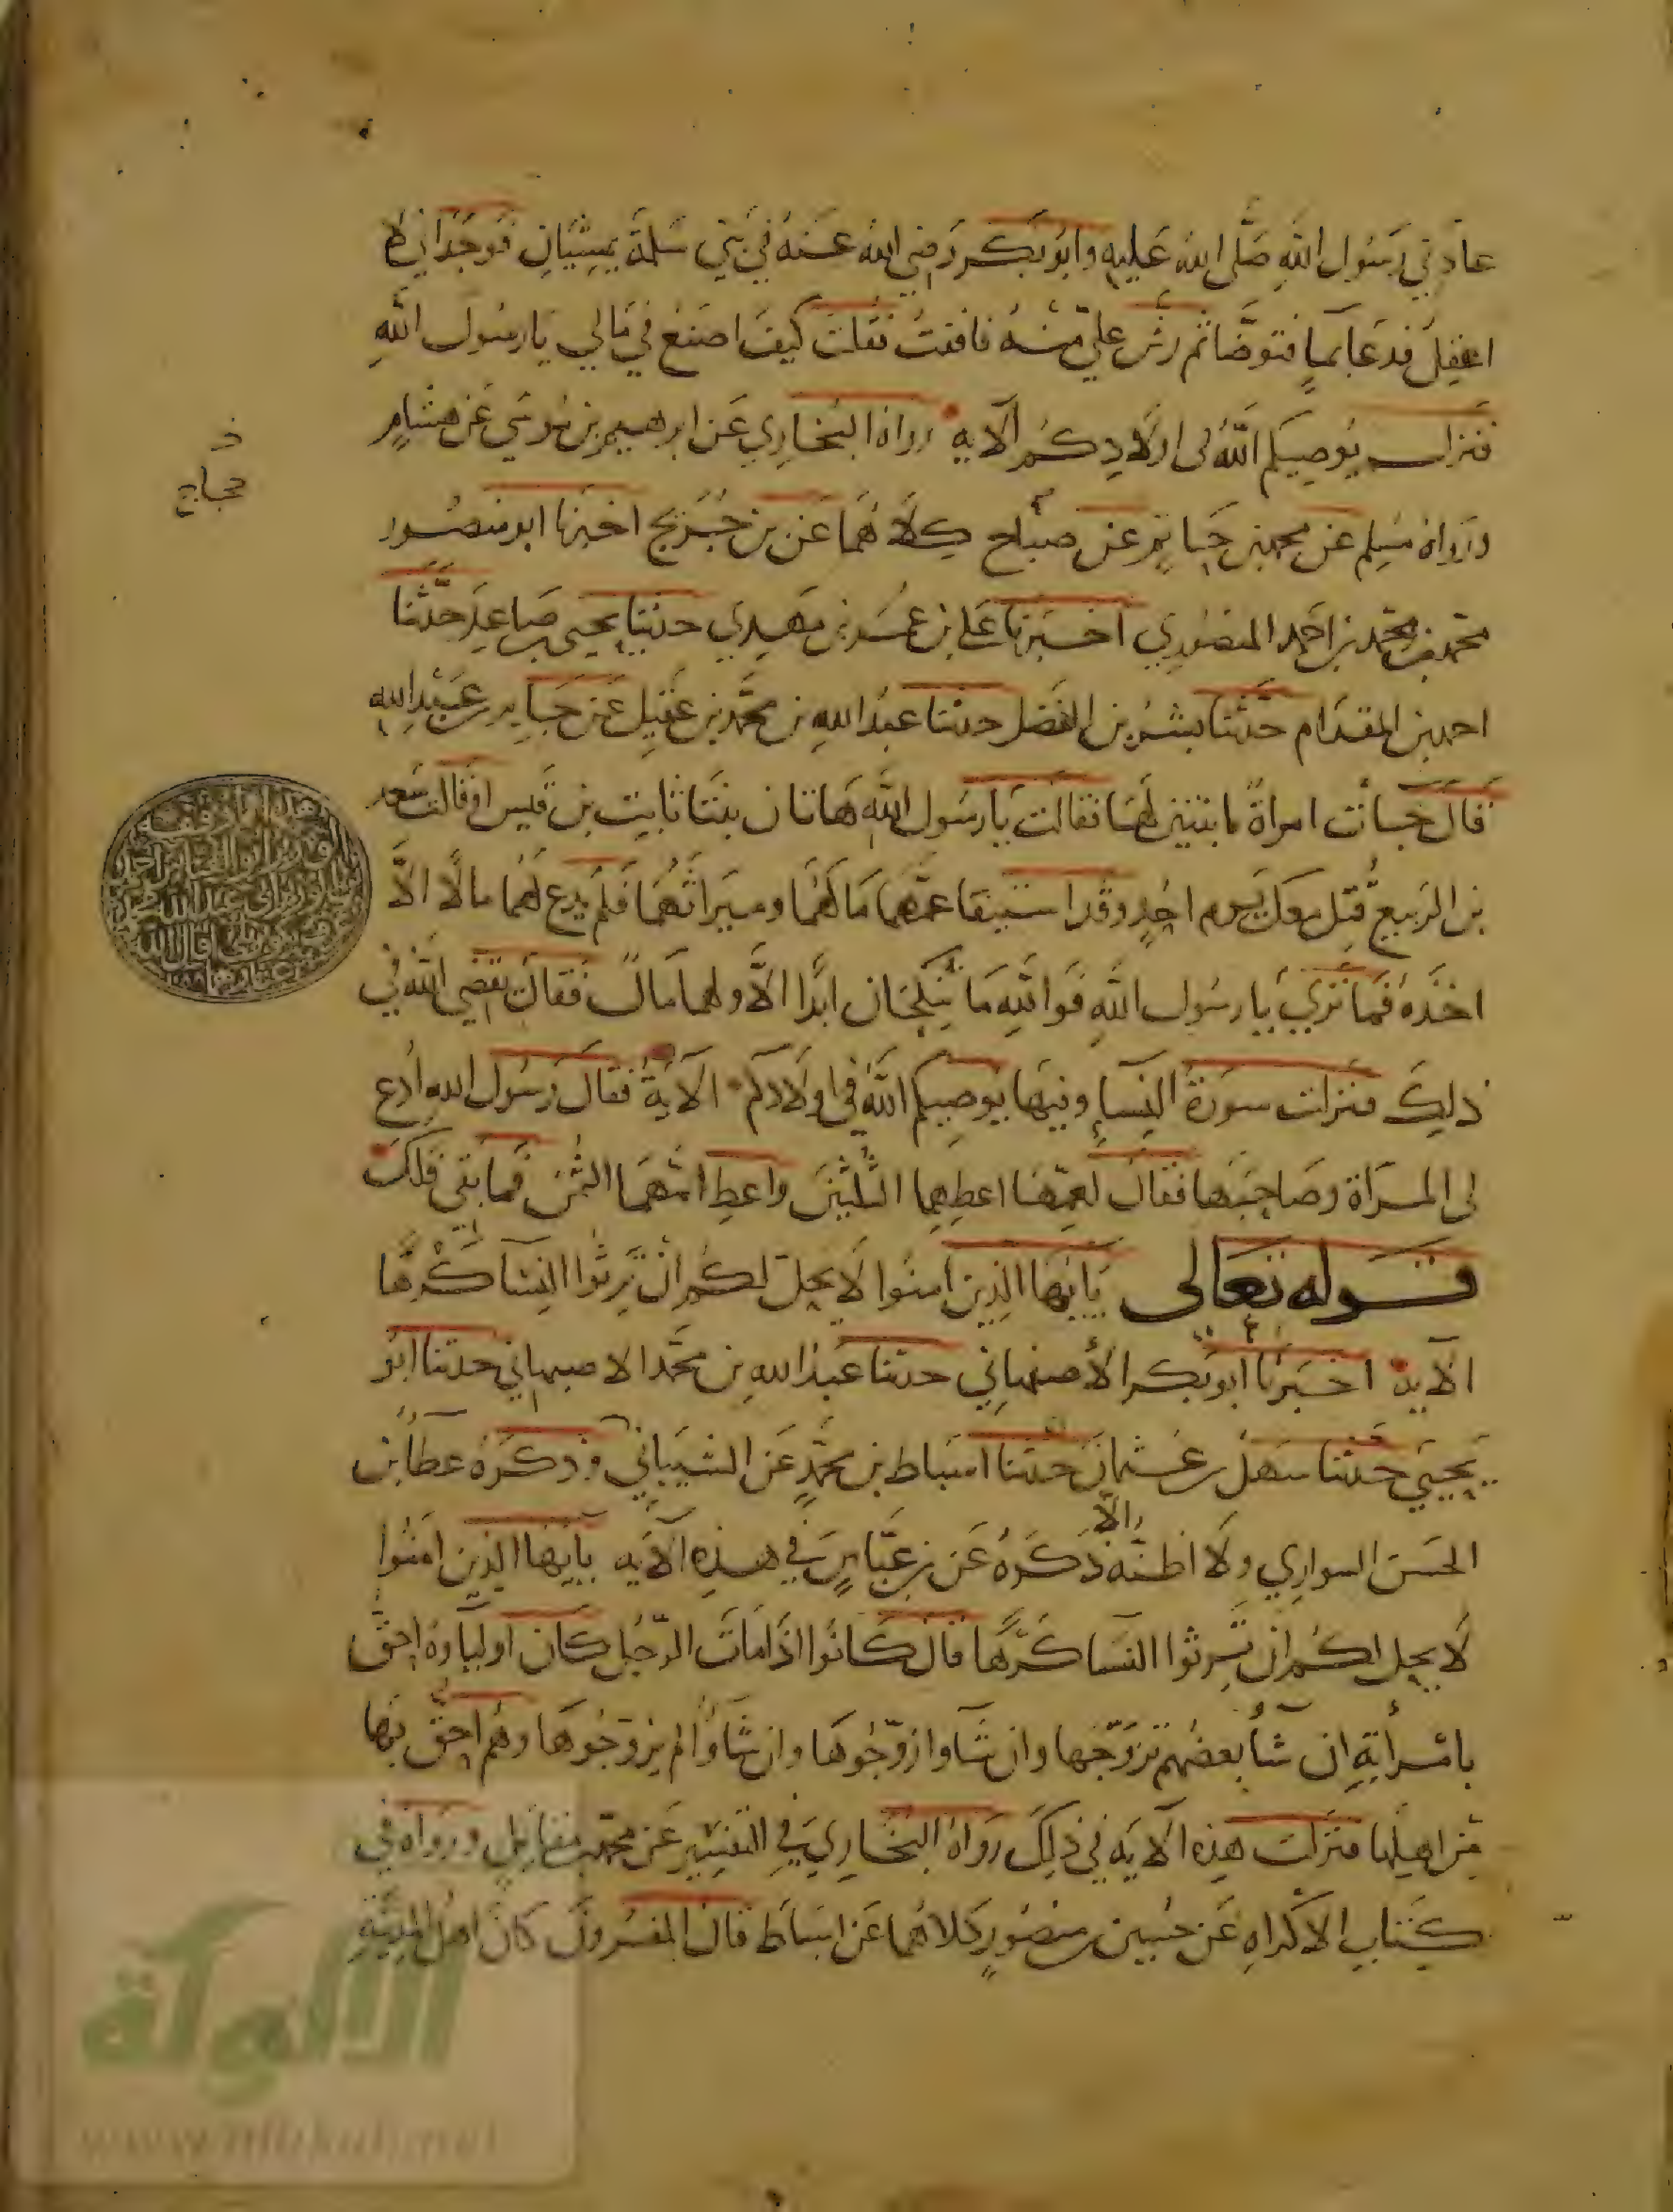 عادني رسول الله صلى الله عليه وابو بكر رضي الله عنه في بني سلمة يمشيان فوجداني لا
اعقل فدعا بماء فتوضا ثم رش علي منه فافقت فقلت كيف اصنع في مالي يا رسول الله
فنزلت يوصيكم الله في اولادكم الآية رواه البخاري عن ابرهيم بن موسي عن هشام
ورواه مسلم عن محمد بن حاتم عن صباح كلاهما عن بن جريج اخبرنا ابو منصور
حجاج
محمد بن محمد بن احمد المنصوري اخبرنا علي بن عمر بن مهدي حدثنا يحيي صاعد حدثنا
احمد بن المقدام حدثنا بشر بن المفضل حدثنا عبد الله بن محمد بن عقيل عن جابر بن عبيد الله
قال جات امراة بابنتين لها فقالت يا رسول الله هاتان بنتا ثابت بن قيس او قالت سعد
بن الربيع قتل معك يوم احد وقد استفا عمهما مالهما وميراثهما فلم يدع لهما مالا الا
اخذه فما تري يا رسول الله فوالله ما ينكحان ابدا الا ولهما مال فقال يقضي الله في
ذلك فنزلت سورة النساء وفيها يوصيكم الله في اولادكم الآية فقال رسول الله ادع
لي المراة وصاحبها فقال لعمهما اعطهما الثلثين واعط امهما الثمن فما بقي فلك
قوله تعالى يا ايها الذين امنوا لا يحل لكم ان ترثوا النسا كرها
الآية اخبرنا ابو بكر الأصفهاني حدثنا عبد الله بن محمد الاصبهاني حدثنا ابو
يحيي حدثنا سهل بن عثمان حدثنا اسباط بن محمد عن الشيباني وذكره عطا بن
الحسن السواري ولا اظنه الا ذكره عن بن عباس في هذه الآية يا ايها الذين امنوا
لا يحل لكم ان ترثوا النسا كرها قال كانوا اذا مات الرجل كان اولياوه احق
بامرأته ان شا بعضهم تزوجها وان شاوا زوجوها وان شاوا لم يزوجوها وهم احق بها
من اهلها فنزلت هذه الآية في ذلك رواه البخاري في التفسير عن محمد بن مقاتل ورواه في
كتاب الاكراه عن حسين بن منصور كلاهما عن اسباط قال المفسرون كان اهل المدينة
الألوكة
www.alukah.net